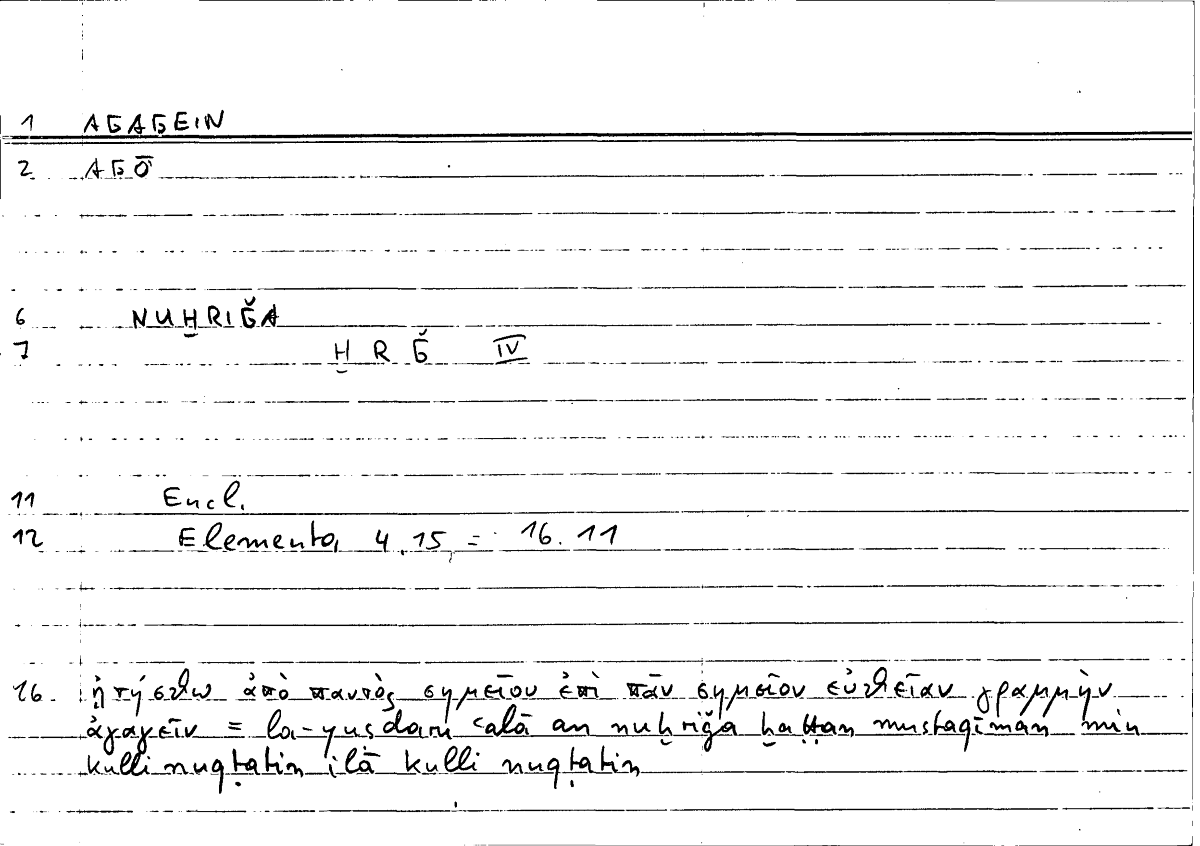 1 AGAGEIN
2 AGŌ
6 NUḪRIǦA
7 Ḫ R Ǧ IV
11 Eucl.
12 Elementa 4.15 = 16.11
16. ᾐτήσθω ἀπὸ παντὸς σημείου ἐπὶ πᾶν σημεῖον εὐθεῖαν γραμμὴν
ἀγαγεῖν = la-yuṣdaru ʿalā an nuḫriǧa ḫaṭṭan mustaqīman min
kulli nuqṭatin ilā kulli nuqṭatin